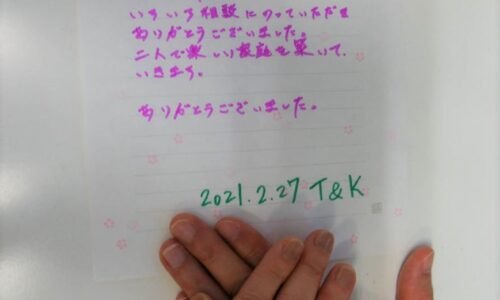 いろいろ相談にのっていただき
ありがとうございました。
二人で楽しい家庭を築いて
いきます。
ありがとうございました。
2021.2.27 T&K